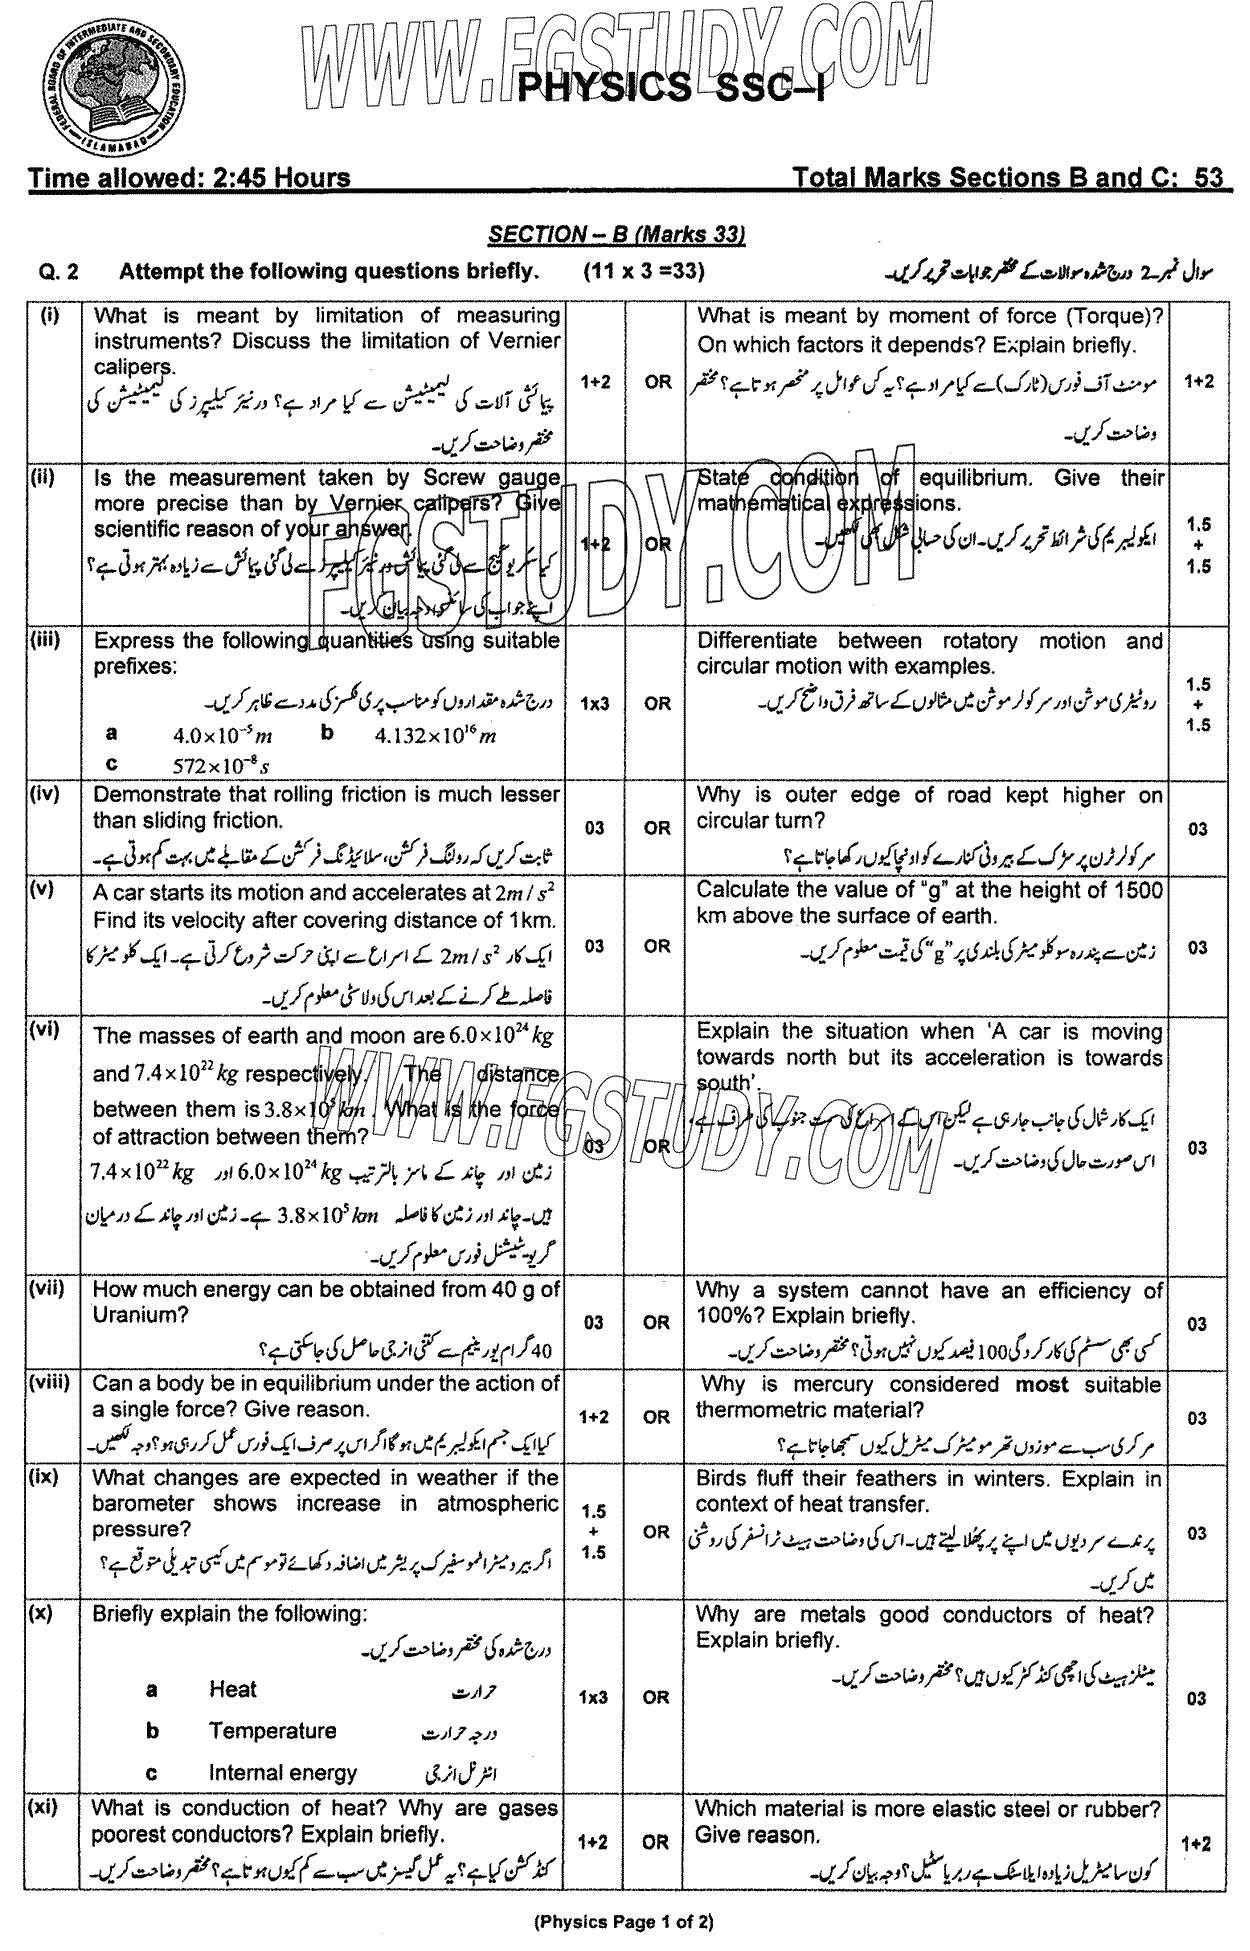 WWW.FGSTUDY.COM
FEDERAL BOARD OF INTERMEDIATE AND SECONDARY EDUCATION
ISLAMABAD
PHYSICS SSC–I
Time allowed: 2:45 Hours Total Marks Sections B and C: 53
SECTION – B (Marks 33)
Q. 2 Attempt the following questions briefly. (11 x 3 =33) سوال نمبر 2 درج شدہ سوالات کے مختصر جوابات تحریر کریں۔
(i) What is meant by limitation of measuring
instruments? Discuss the limitation of Vernier
calipers.
پیمائشی آلات کی لیمیٹیشن سے کیا مراد ہے؟ ورنیئر کیلیپرز کی لیمیٹیشن کی
مختصر وضاحت کریں۔
1+2 OR
What is meant by moment of force (Torque)?
On which factors it depends? Explain briefly.
مومنٹ آف فورس (ٹارک) سے کیا مراد ہے؟ یہ کن عوامل پر منحصر ہوتا ہے؟ مختصر
وضاحت کریں۔
1+2
(ii) Is the measurement taken by Screw gauge
more precise than by Vernier calipers? Give
scientific reason of your answer.
کیا سکریو گیج سے لی گئی پیمائش ورنیئر کیلیپرز سے لی گئی پیمائش سے زیادہ بہتر ہوتی ہے؟
اپنے جواب کی سائنسی وجہ بیان کریں۔
1+2 OR
State condition of equilibrium. Give their
mathematical expressions.
ایکولبیریم کی شرائط تحریر کریں۔ ان کی حسابی شکل بھی لکھیں۔
1.5
+
1.5
FGSTUDY.COM
(iii) Express the following quantities using suitable
prefixes:
درج شدہ مقداروں کو مناسب پری فکسز کی مدد سے ظاہر کریں۔
a 4.0×10⁻⁵m b 4.132×10¹⁶m
c 572×10⁻⁸s
1x3 OR
Differentiate between rotatory motion and
circular motion with examples.
روٹیٹری موشن اور سرکولر موشن میں مثالوں کے ساتھ فرق واضح کریں۔
1.5
+
1.5
(iv) Demonstrate that rolling friction is much lesser
than sliding friction.
ثابت کریں کہ رولنگ فرکشن، سلائیڈنگ فرکشن کے مقابلے میں بہت کم ہوتی ہے۔
03 OR
Why is outer edge of road kept higher on
circular turn?
سرکولر ٹرن پر سڑک کے بیرونی کنارے کو اونچا کیوں رکھا جاتا ہے؟
03
(v) A car starts its motion and accelerates at 2m/s²
Find its velocity after covering distance of 1km.
ایک کار 2m/s² کے اسراع سے اپنی حرکت شروع کرتی ہے۔ ایک کلو میٹر کا
فاصلہ طے کرنے کے بعد اس کی ولاسٹی معلوم کریں۔
03 OR
Calculate the value of "g" at the height of 1500
km above the surface of earth.
زمین سے پندرہ سو کلومیٹر کی بلندی پر "g" کی قیمت معلوم کریں۔
03
(vi) The masses of earth and moon are 6.0×10²⁴kg
and 7.4×10²²kg respectively. The distance
between them is 3.8×10⁵km. What is the force
of attraction between them?
زمین اور چاند کے ماسز بالترتیب 6.0×10²⁴kg اور 7.4×10²²kg
ہیں۔ چاند اور زمین کا فاصلہ 3.8×10⁵km ہے۔ زمین اور چاند کے درمیان
گریویٹیشنل فورس معلوم کریں۔
03 OR
Explain the situation when 'A car is moving
towards north but its acceleration is towards
south'.
ایک کار شمال کی جانب جا رہی ہے لیکن اس کے اسراع کی سمت جنوب کی طرف ہے،
اس صورت حال کی وضاحت کریں۔
03
WWW.FGSTUDY.COM
(vii) How much energy can be obtained from 40 g of
Uranium?
40 گرام یورینیم سے کتنی انرجی حاصل کی جاسکتی ہے؟
03 OR
Why a system cannot have an efficiency of
100%? Explain briefly.
کسی بھی سسٹم کی کارکردگی 100 فیصد کیوں نہیں ہوتی؟ مختصر وضاحت کریں۔
03
(viii) Can a body be in equilibrium under the action of
a single force? Give reason.
کیا ایک جسم ایکولبیریم میں ہوگا اگر اس پر صرف ایک فورس عمل کر رہی ہو؟ وجہ لکھیں۔
1+2 OR
Why is mercury considered most suitable
thermometric material?
مرکری سب سے موزوں تھرمومیٹرک میٹریل کیوں سمجھا جاتا ہے؟
03
(ix) What changes are expected in weather if the
barometer shows increase in atmospheric
pressure?
اگر بیرومیٹر اٹموسفیرک پریشر میں اضافہ دکھائے تو موسم میں کیسی تبدیلی متوقع ہے؟
1.5
+
1.5
OR
Birds fluff their feathers in winters. Explain in
context of heat transfer.
پرندے سردیوں میں اپنے پر پھلا لیتے ہیں۔ اس کی وضاحت ہیٹ ٹرانسفر کی روشنی
میں کریں۔
03
(x) Briefly explain the following:
درج شدہ کی مختصر وضاحت کریں۔
a Heat حرارت
b Temperature درجہ حرارت
c Internal energy انٹرنل انرجی
1x3 OR
Why are metals good conductors of heat?
Explain briefly.
میٹلز ہیٹ کی اچھی کنڈکٹر کیوں ہیں؟ مختصر وضاحت کریں۔
03
(xi) What is conduction of heat? Why are gases
poorest conductors? Explain briefly.
کنڈکشن کیا ہے؟ یہ عمل گیسز میں سب سے کم کیوں ہوتا ہے؟ مختصر وضاحت کریں۔
1+2 OR
Which material is more elastic steel or rubber?
Give reason.
کون سا میٹریل زیادہ ایلاسٹک ہے ربر یا سٹیل؟ وجہ بیان کریں۔
1+2
(Physics Page 1 of 2)